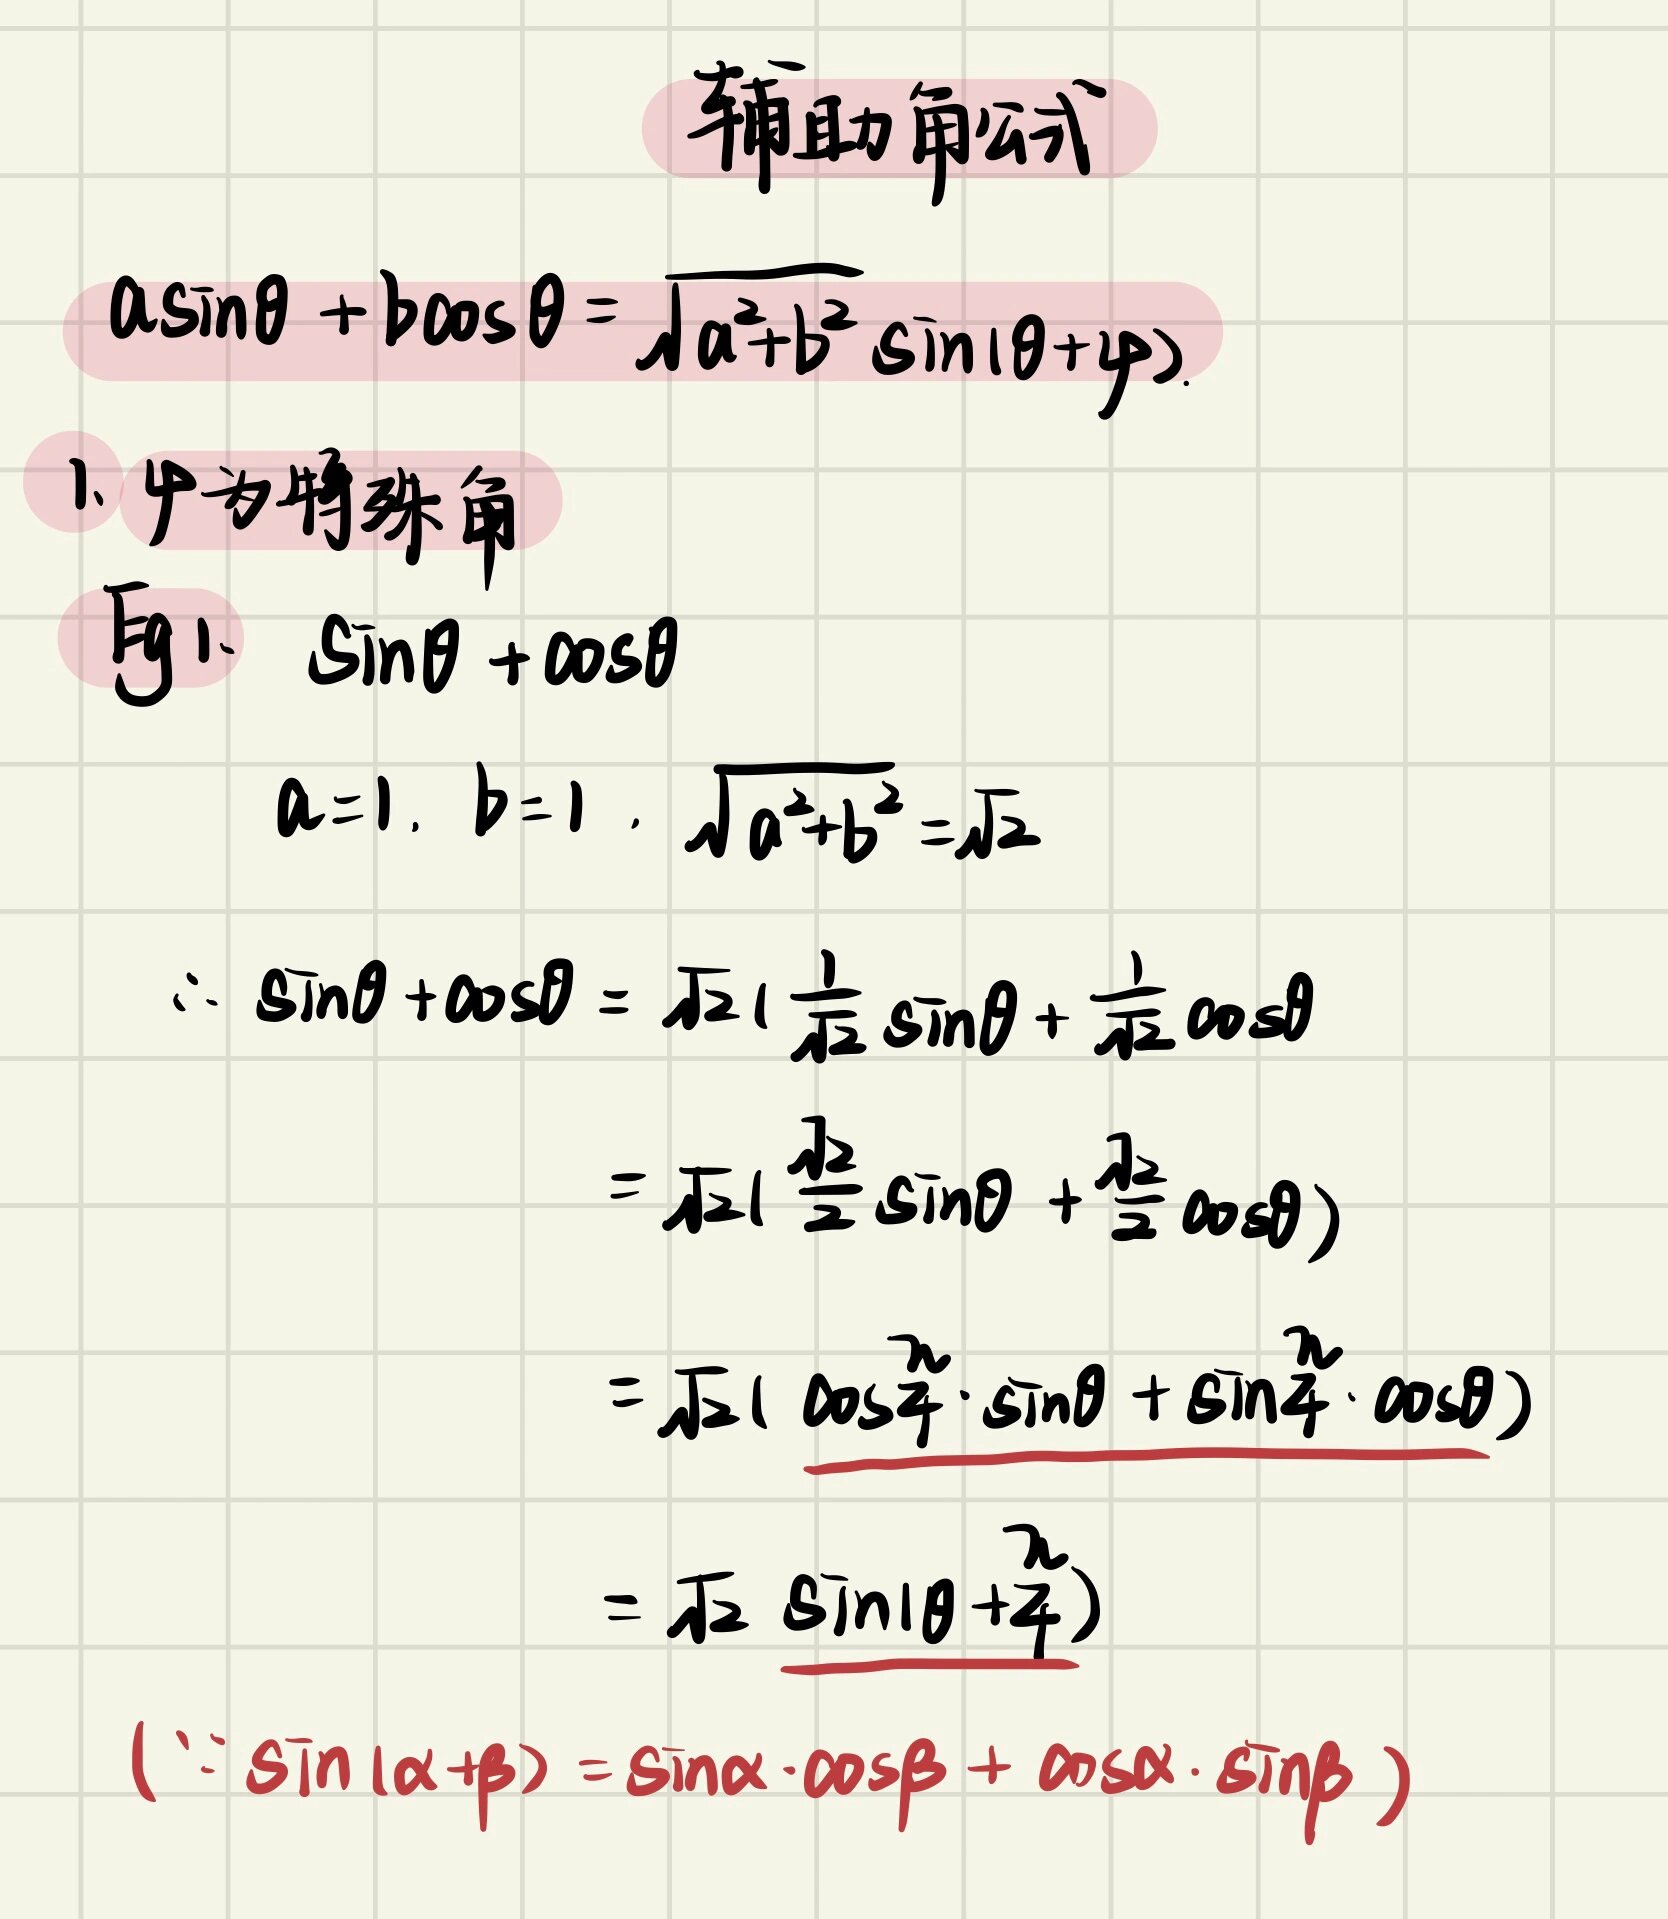 辅助角公式
asinθ + bcosθ = √(a²+b²) sin(θ+φ).
1、φ为特殊角
Eg1: sinθ + cosθ
a=1. b=1. √(a²+b²) = √2
∴ sinθ + cosθ = √2( 1/√2 sinθ + 1/√2 cosθ
= √2( √2/2 sinθ + √2/2 cosθ)
= √2( cos π/4 · sinθ + sin π/4 · cosθ)
= √2 sin(θ + π/4)
(∵ sin(α+β) = sinα · cosβ + cosα · sinβ)